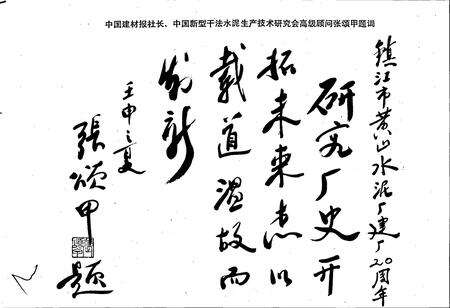 中国建材报社长、中国新型干法水泥生产技术研究会高级顾问张颂甲题词
镇江市黄山水泥厂建厂20周年
研究厂史开
拓未来志以
載道温故而
创新
壬申之夏
張颂甲題